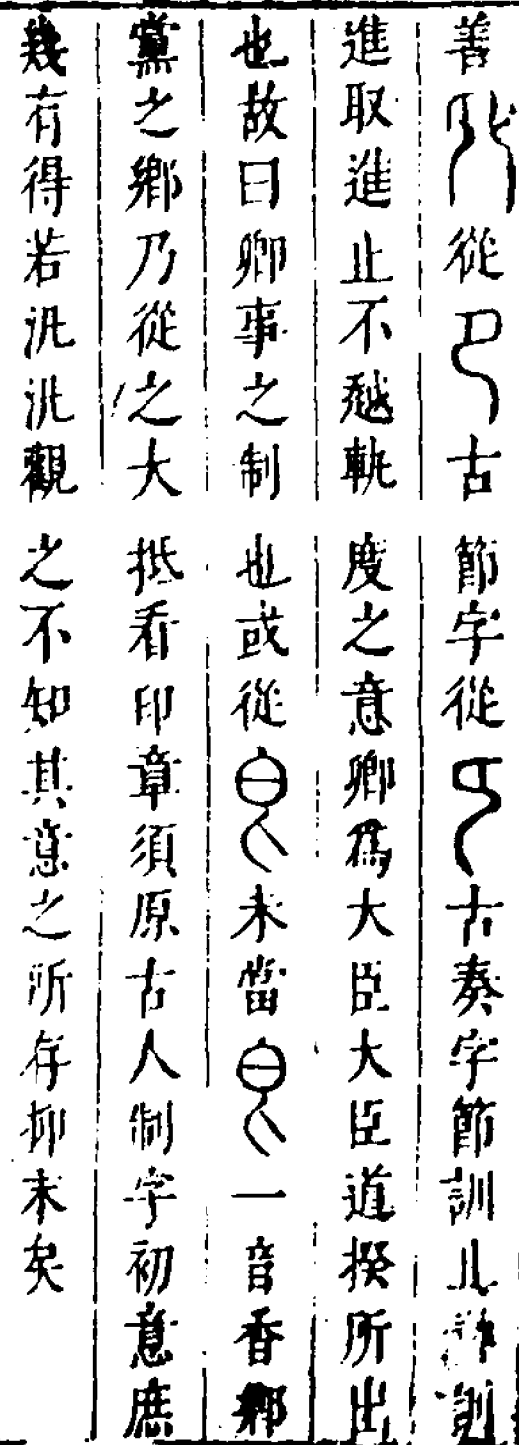 善從卩古節字從古奏字節訓止
進取進止不越軌度之意卿爲大臣大臣道揆所出
也故曰卿事之制也或從皀未當皀一音香鄉
黨之鄉乃從之大抵看印章須原古人制字初意庶
幾有得若汎汎觀之不知其意之所存抑末矣